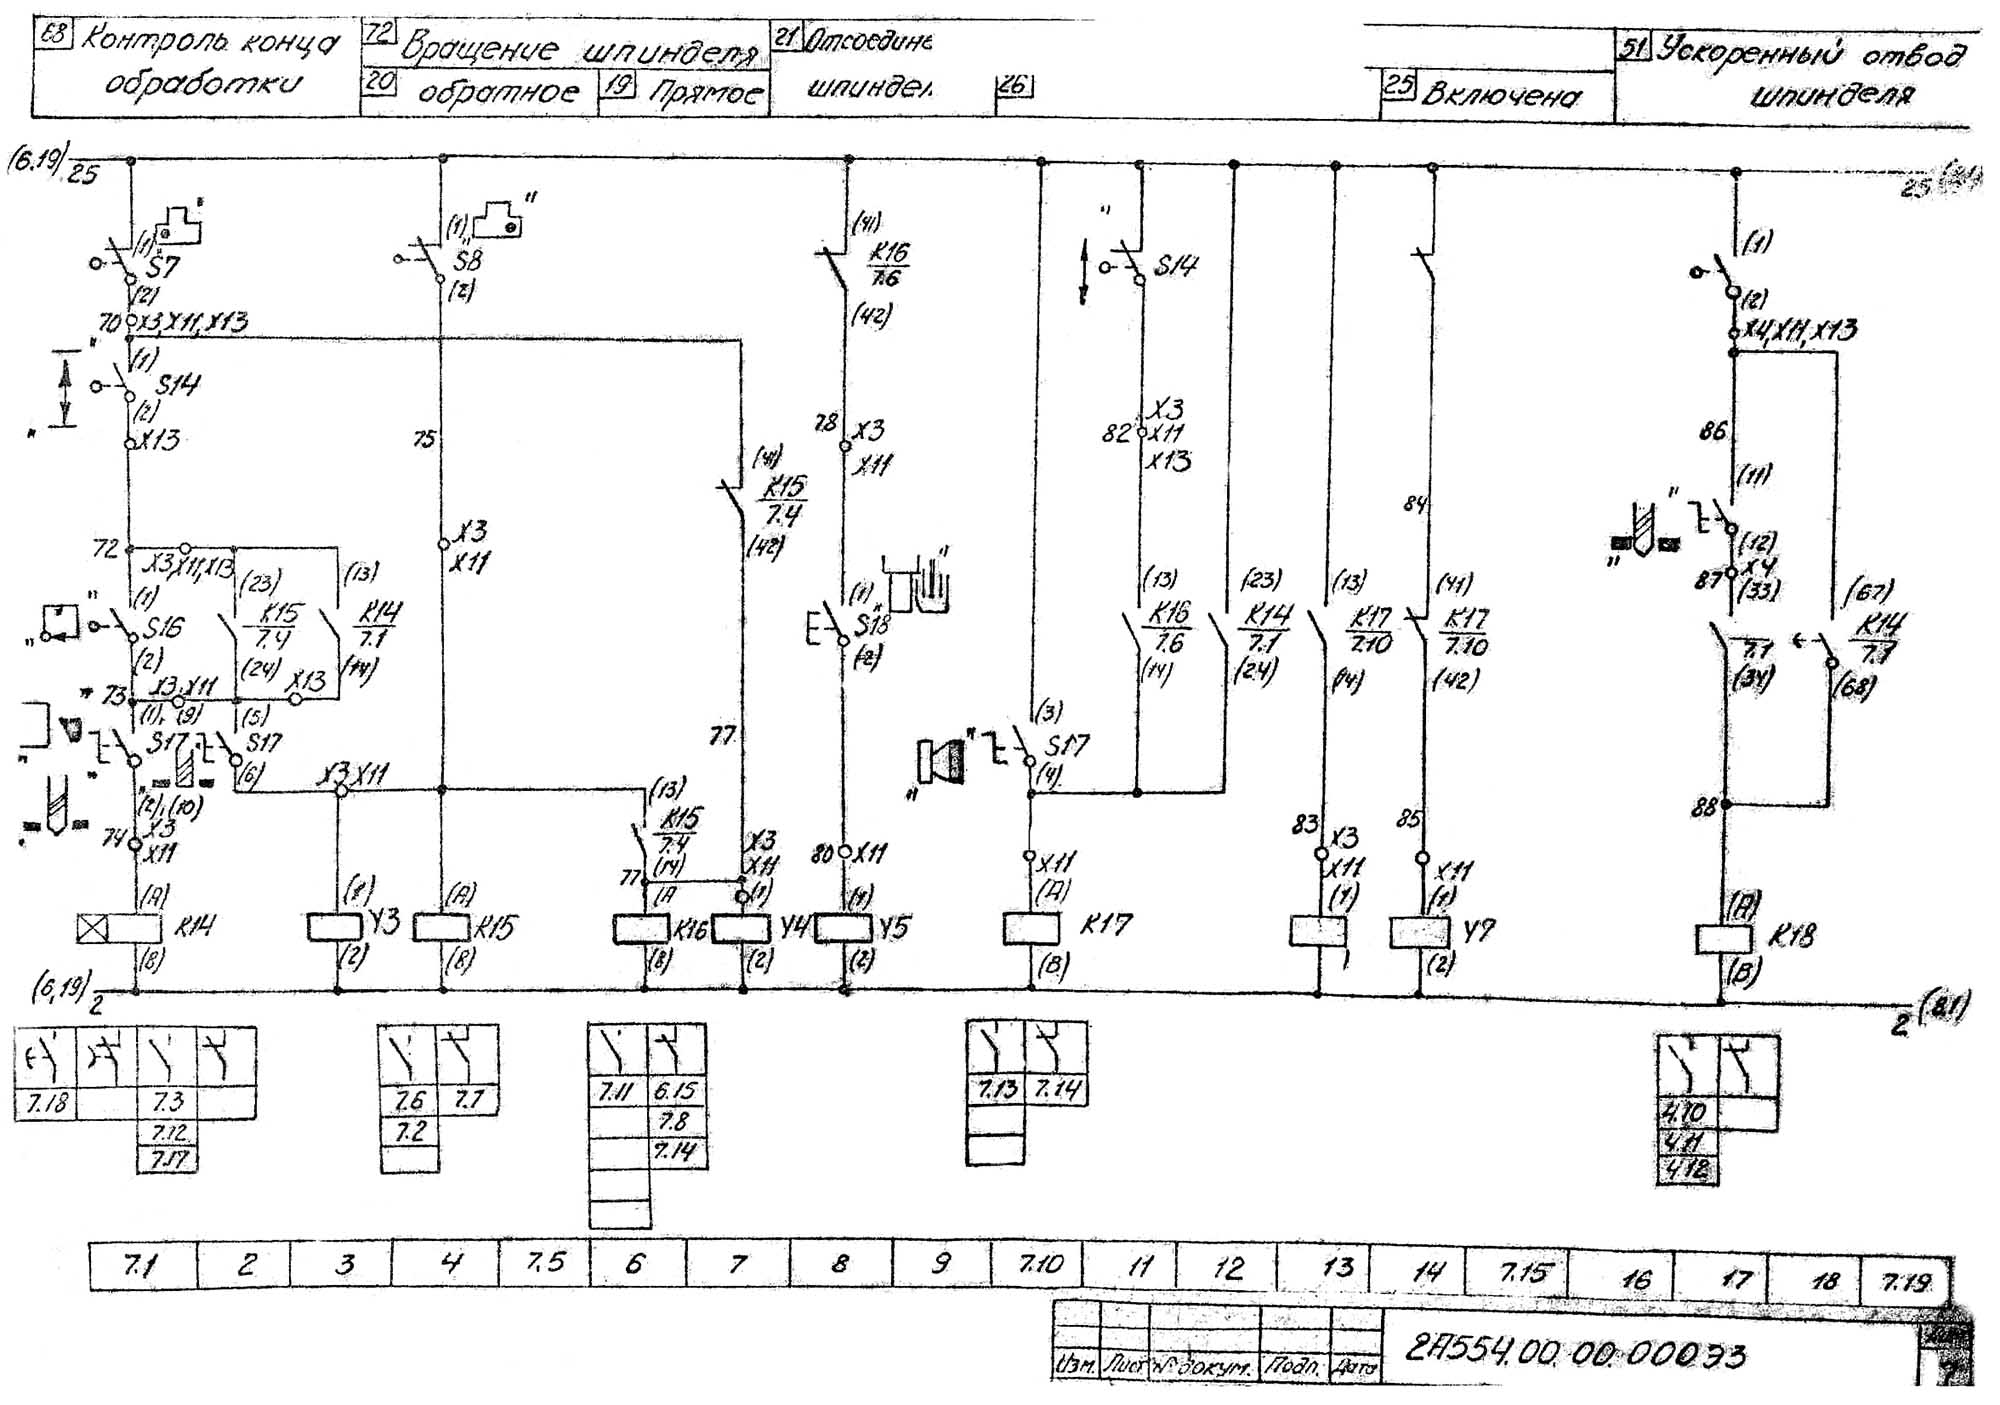 68 Контроль конца
обработки
72 Вращение шпинделя
20 обратное
19 Прямое
21 Отсоедине
шпиндел
26
25 Включена
51 Ускоренный отвод
шпинделя
(6.19) 25
25
(1) S7 (2)
70 X3, X11, X13
(1) S14 (2)
X13
72 X3, X11, X13
(1) S16 (2)
(23) K15 7.4 (24)
(13) K14 7.1 (14)
73 X3, X11
X13
(1), (9) S17
(2), (10)
(5) S17 (6)
X3 X11
74 X3 X11
(A) K14 (B)
(1) Y3 (2)
(1) S8 (2)
75
X3 X11
(A) K15 (B)
(13) K15 7.4 (14)
77
(A K16 (B)
(41) K15 7.4 (42)
77
X3 X11
(1) Y4 (2)
(41) K16 7.6 (42)
78 X3 X11
(1) S18 (2)
80 X11
(1) Y5 (2)
(3) S17 (4)
X11
(A) K17 (B)
S14
82 X3 X11 X13
(13) K16 7.6 (14)
(23) K14 7.1 (24)
(13) K17 7.10 (14)
83 X3 X11
(1)
84
(41) K17 7.10 (42)
85
X11
(1) Y7 (2)
(1)
(2)
X4, X11, X13
86
(11)
(12)
X4
87 (33)
7.1
(34)
(67) K14 7.1 (68)
88
(A) K18 (B)
(6,19) 2
2 (8.1)
7.18 7.3
7.12
7.17
7.6 7.7
7.2
7.11 6.15
7.8
7.14
7.13 7.14
4.10
4.11
4.12
7.1 2 3 4 7.5 6 7 8 9 7.10 11 12 13 14 7.15 16 17 18 7.19
Изм. Лист № докум. Подп. Дата
2А554.00.00.000ЭЗ